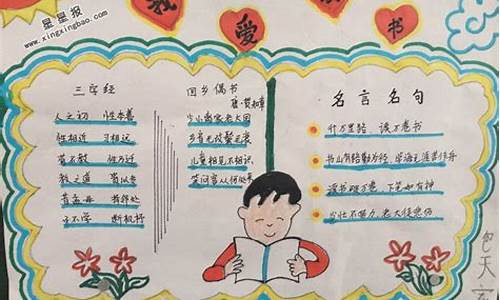 星星报
www.xingxingbao.com
我 爱 书
三字经
人之初 性本善
性相近 习相远
苟不教 性乃迁
教之道 贵以专
昔孟母 择邻处
子不学 断机杼
回乡偶书
唐·贺知章
少小离家老大回
乡音无改鬓毛衰
儿童相见不相识
笑问客从何处来
名言名句
行万里路 读万卷书
书山有路勤为径 学海无涯苦作舟
读书破万卷 下笔如有神
少壮不努力 老大徒悲伤
包天